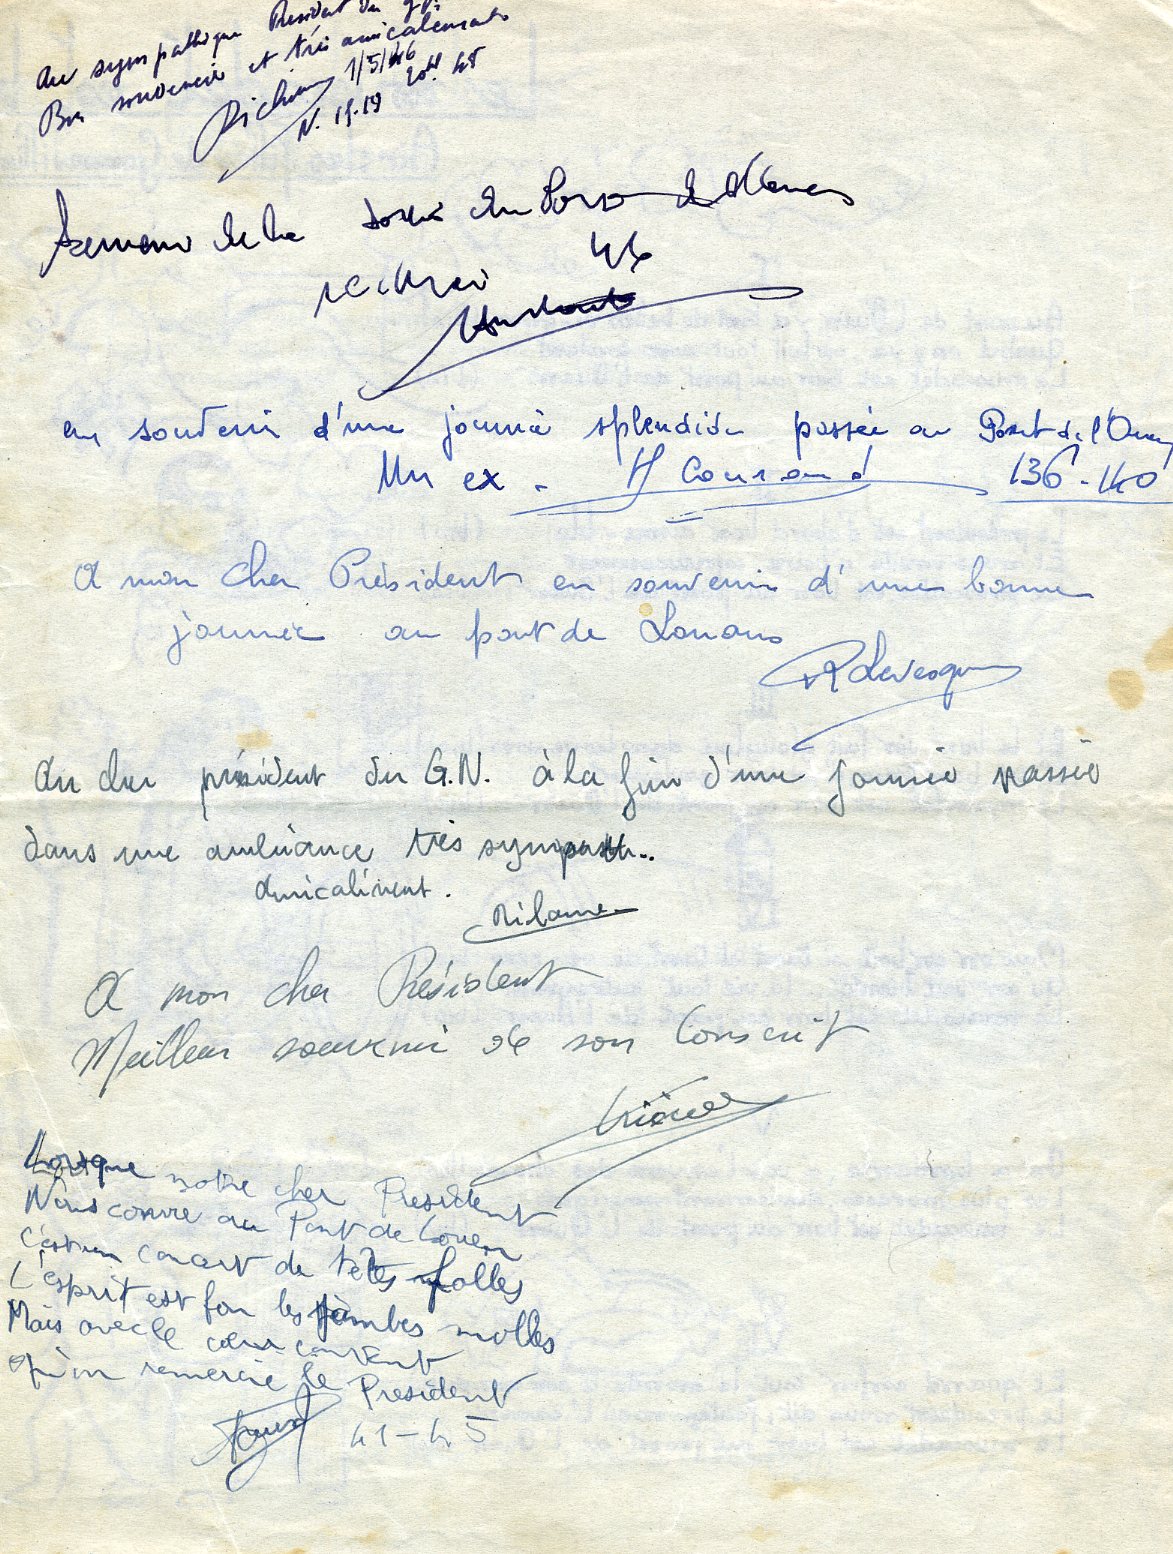 Au sympathique Président du
Bon souvenir et très amicalement
1/5/46
Souvenir de la sortie du Pont de
1er Mai 46
en souvenir d'une journée splendide passée au Pont de l'Ouen
Un ex - H Courand 136-140
A mon cher Président en souvenir d'une bonne
journée au pont de Louans
R Levesque
Au cher président du G.N. à la fin d'une journée passée
dans une ambiance très sympath..
Amicalement.
A mon cher Président
Meilleur souvenir de son Conscrit
Lorsque notre cher President
Nous convie au Pont de Louen
c'est un concert de têtes folles
L'esprit est fou les jambes molles
Mais avec le cœur content
Qu'on remercie le President
41-45